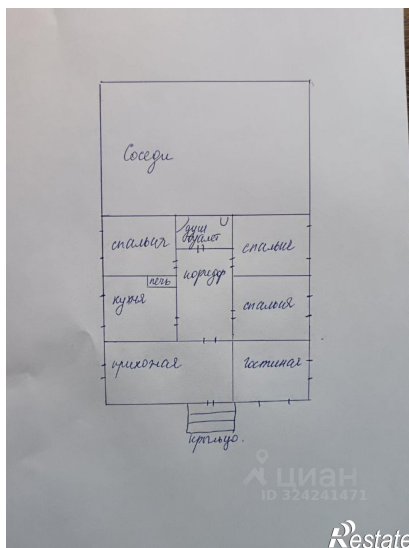 Соседи
душ
туалет
спальня
спальня
коридор
печь
кухня
спальня
прихожая
гостиная
крыльцо.
циан
ID 324241471
Restate